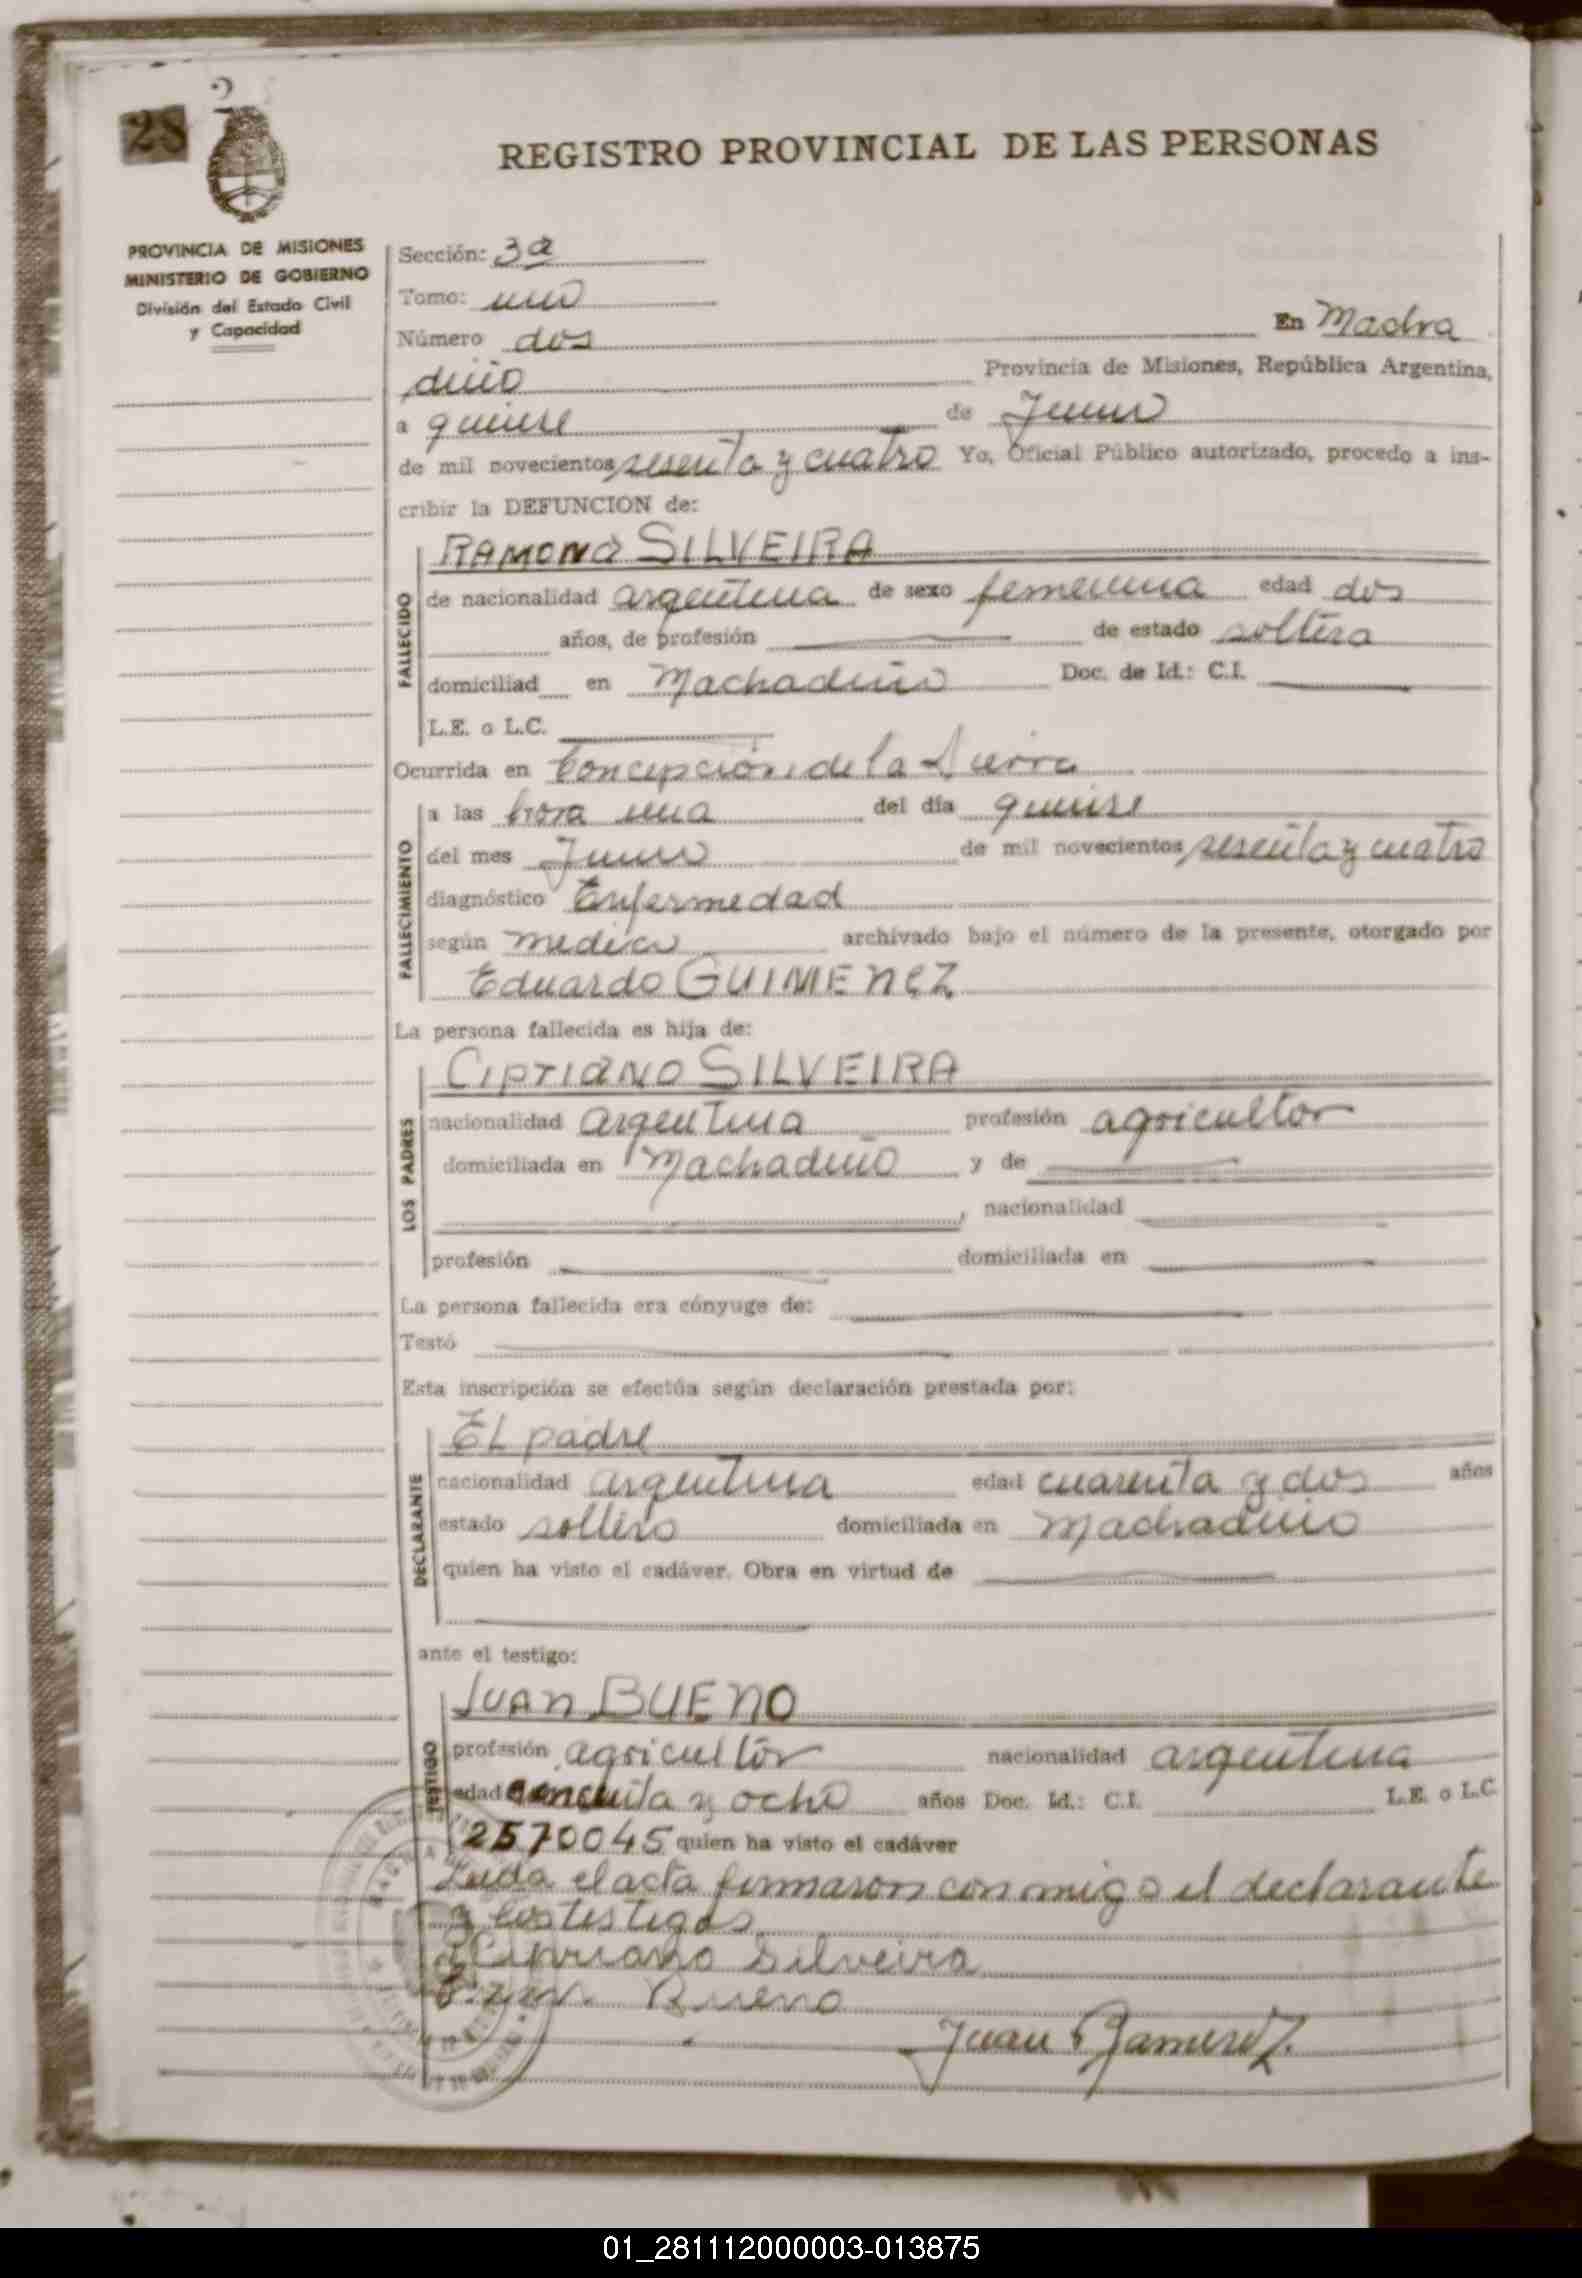 2
28
REGISTRO PROVINCIAL DE LAS PERSONAS
PROVINCIA DE MISIONES
MINISTERIO DE GOBIERNO
División del Estado Civil
y Capacidad
Sección: 3a
Tomo: uno
Número dos En Machadiño
Provincia de Misiones, República Argentina,
a quinse de Junio
de mil novecientos sesenta y cuatro Yo, Oficial Público autorizado, procedo a ins-
cribir la DEFUNCION de:
FALLECIDO
RAMONA SILVEIRA
de nacionalidad argentina de sexo femenina edad dos
años, de profesión de estado soltera
domiciliad en Machadiño Doc. de Id.: C.I.
L.E. o L.C.
Ocurrida en Concepción de la Sierra
FALLECIMIENTO
a las hora una del día quinse
del mes Junio de mil novecientos sesenta y cuatro
diagnóstico Enfermedad
según medico archivado bajo el número de la presente, otorgado por
Eduardo GUIMENEZ
La persona fallecida es hija de:
LOS PADRES
CIPRIANO SILVEIRA
nacionalidad argentina profesión agricultor
domiciliada en Machadiño y de
, nacionalidad
profesión domiciliada en
La persona fallecida era cónyuge de:
Testó
Esta inscripción se efectúa según declaración prestada por:
DECLARANTE
EL padre
nacionalidad argentina edad cuarenta y dos años
estado soltero domiciliada en Machadiño
quien ha visto el cadáver. Obra en virtud de
ante el testigo:
TESTIGO
JUAN BUENO
profesión agricultor nacionalidad argentina
edad y ocho años Doc. Id.: C.I. L.E. o L.C.
2570045 quien ha visto el cadáver
Leida el acta firmaron conmigo el declarante
y los testigos
Cipriano Silveira
Bueno
Juan Ramirez
01_281112000003-013875